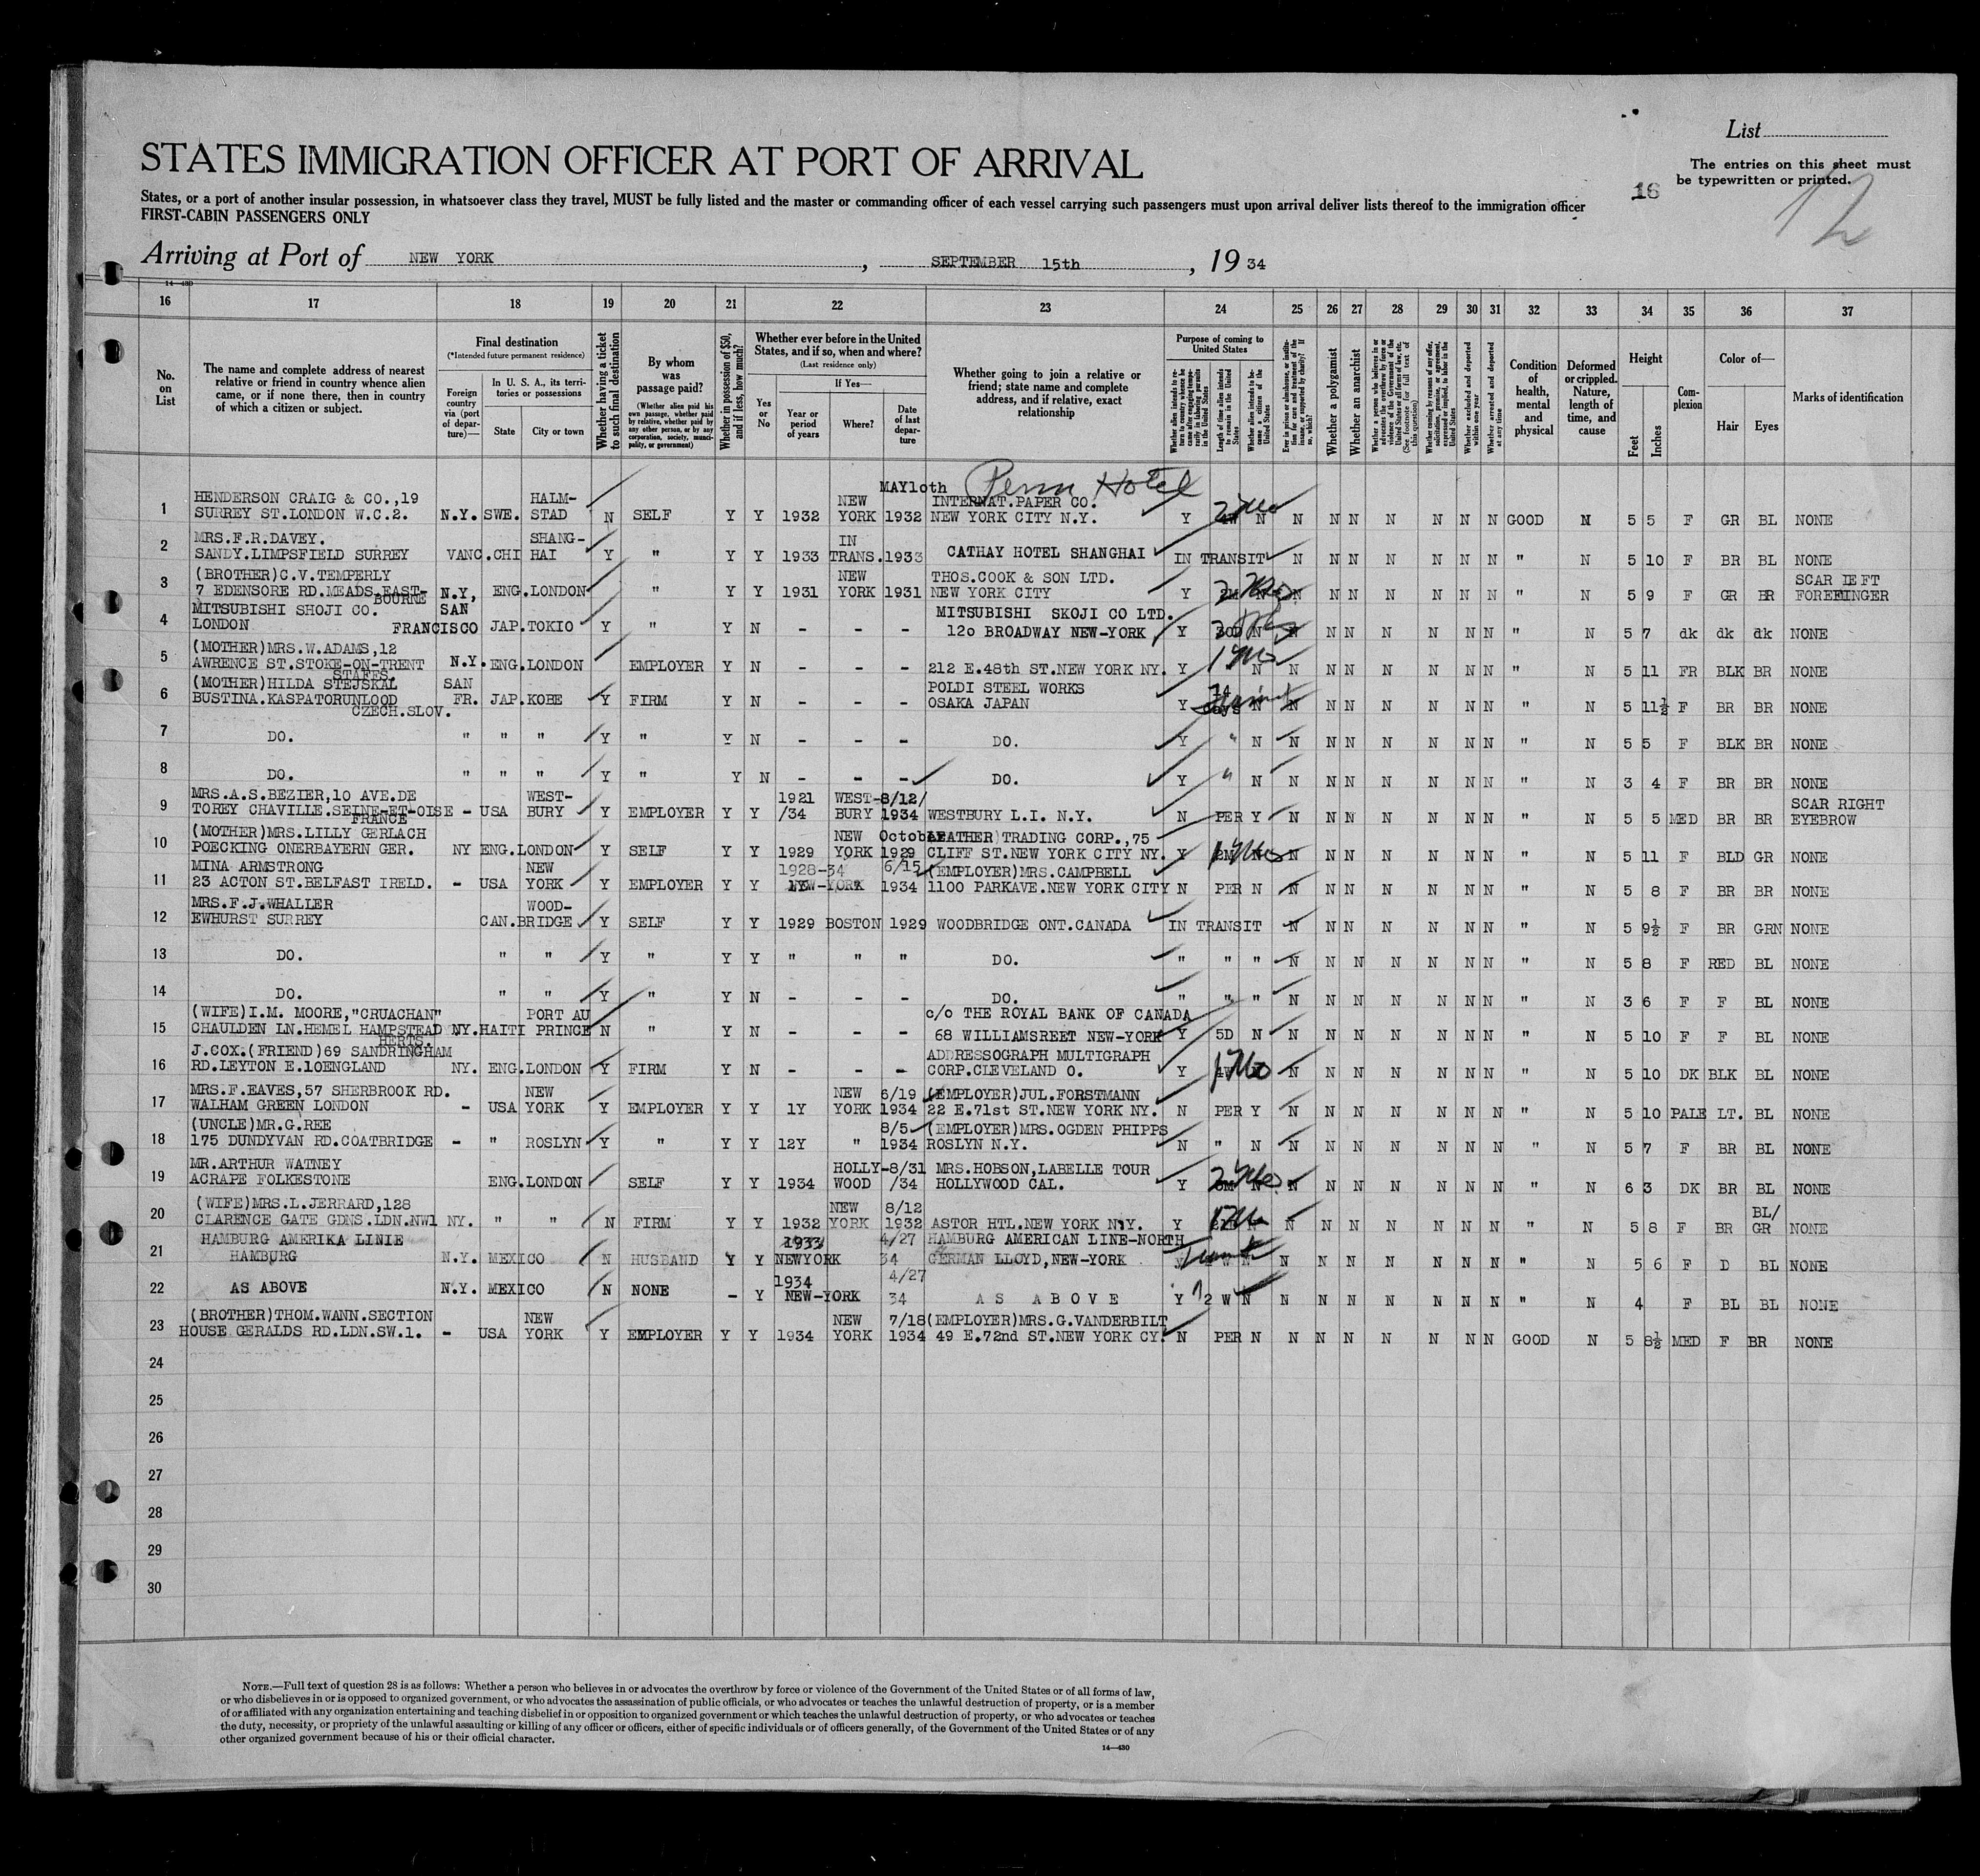 List
The entries on this sheet must
be typewritten or printed.
16
12
STATES IMMIGRATION OFFICER AT PORT OF ARRIVAL
States, or a port of another insular possession, in whatsoever class they travel, MUST be fully listed and the master or commanding officer of each vessel carrying such passengers must upon arrival deliver lists thereof to the immigration officer
FIRST-CABIN PASSENGERS ONLY
Arriving at Port of NEW YORK, SEPTEMBER 15th, 19 34
14—430
16 17 18 19 20 21 22 23 24 25 26 27 28 29 30 31 32 33 34 35 36 37
No. on List
The name and complete address of nearest relative or friend in country whence alien came, or if none there, then in country of which a citizen or subject.
Final destination
(*Intended future permanent residence)
Foreign country via (port of departure)—
In U. S. A., its territories or possessions
State
City or town
Whether having a ticket to such final destination
By whom was passage paid?
(Whether alien paid his own passage, whether paid by relative, whether paid by any other person, or by any corporation, society, municipality, or government)
Whether in possession of $50, and if less, how much?
Whether ever before in the United States, and if so, when and where?
(Last residence only)
Yes or No
If Yes—
Year or period of years
Where?
Date of last departure
Whether going to join a relative or friend; state name and complete address, and if relative, exact relationship
Purpose of coming to United States
Length of time alien intends to remain in the United States
Whether alien intends to become a citizen of the United States
Whether a polygamist
Whether an anarchist
Whether excluded and deported within one year
Whether arrested and deported at any time
Condition of health, mental and physical
Deformed or crippled. Nature, length of time, and cause
Height
Feet
Inches
Complexion
Color of—
Hair
Eyes
Marks of identification
Penn Hotel
HENDERSON CRAIG & CO.,19 HALM- NEW MAY10th INTERNAT.PAPER CO.
1 SURREY ST.LONDON W.C.2. N.Y. SWE. STAD N SELF Y Y 1932 YORK 1932 NEW YORK CITY N.Y. Y N N N N N N N N GOOD N 5 5 F GR BL NONE
MRS.F.R.DAVEY. SHANG- IN
2 SANDY.LIMPSFIELD SURREY VANC.CHI HAI Y " Y Y 1933 TRANS. 1933 CATHAY HOTEL SHANGHAI IN TRANSIT N N N N N N N " N 5 10 F BR BL NONE
(BROTHER)C.V.TEMPERLY NEW THOS.COOK & SON LTD. SCAR LEFT
3 7 EDENSORE RD.MEADS EAST-BOURNE N.Y, ENG.LONDON " Y Y 1931 YORK 1931 NEW YORK CITY Y N N N N N N N " N 5 9 F GR BR FOREFINGER
MITSUBISHI SHOJI CO. SAN MITSUBISHI SKOJI CO LTD.
4 LONDON FRANCISCO JAP.TOKIO Y " Y N - - - 120 BROADWAY NEW-YORK Y N N N N N N N N " N 5 7 dk dk dk NONE
(MOTHER)MRS.W.ADAMS,12
5 AWRENCE ST.STOKE-ON-TRENT STAFFS. N.Y. ENG.LONDON EMPLOYER Y N - - - 212 E.48th ST.NEW YORK NY. Y N N N N N N N N " N 5 11 FR BLK BR NONE
(MOTHER)HILDA STEJSKAL SAN POLDI STEEL WORKS 14
6 BUSTINA.KASPATORUNLOOD CZECH.SLOV. FR. JAP.KOBE Y FIRM Y N - - - OSAKA JAPAN Y days N N N N N N N N " N 5 11½ F BR BR NONE
7 DO. " " " Y " Y N - - - DO. Y " N N N N N N N N " N 5 5 F BLK BR NONE
8 DO. " " " Y " Y N - - - DO. Y " N N N N N N N N " N 3 4 F BR BR NONE
MRS.A.S.BEZIER,10 AVE.DE WEST- 1921 WEST- 8/12/ SCAR RIGHT
9 TOREY CHAVILLE.SEINE-ET-OISE FRANCE - USA BURY Y EMPLOYER Y Y /34 BURY 1934 WESTBURY L.I. N.Y. N PER Y N N N N N N N " N 5 5 MED BR BR EYEBROW
(MOTHER)MRS.LILLY GERLACH NEW October LEATHER TRADING CORP.,75
10 POECKING ONERBAYERN GER. NY ENG.LONDON Y SELF Y Y 1929 YORK 1929 CLIFF ST.NEW YORK CITY NY. Y N N N N N N N " N 5 11 F BLD GR NONE
MINA ARMSTRONG NEW 1928-34 6/15 (EMPLOYER)MRS.CAMPBELL
11 23 ACTON ST.BELFAST IRELD. - USA YORK Y EMPLOYER Y Y NEW-YORK 1934 1100 PARKAVE.NEW YORK CITY N PER N N N N N N N N " N 5 8 F BR BR NONE
MRS.F.J.WHALLER WOOD-
12 EWHURST SURREY CAN.BRIDGE Y SELF Y Y 1929 BOSTON 1929 WOODBRIDGE ONT.CANADA IN TRANSIT N N N N N N N " N 5 9½ F BR GRN NONE
13 DO. " " Y " Y Y " " " DO. " " " N N N N N N N " N 5 8 F RED BL NONE
14 DO. " " Y " Y N - - - DO. " " " N N N N N N N " N 3 6 F F BL NONE
(WIFE)I.M. MOORE,"CRUACHAN" PORT AU c/o THE ROYAL BANK OF CANADA
15 CHAULDEN LN.HEMEL HAMPSTEAD HERTS. NY.HAITI PRINCE N " Y N - - - 68 WILLIAMSREET NEW-YORK Y 5D N N N N N N N N " N 5 10 F F BL NONE
J.COX.(FRIEND)69 SANDRINGHAM ADDRESSOGRAPH MULTIGRAPH
16 RD.LEYTON E.10ENGLAND NY. ENG.LONDON Y FIRM Y N - - - CORP.CLEVELAND O. Y N N N N N N N " N 5 10 DK BLK BL NONE
MRS.F.EAVES,57 SHERBROOK RD. NEW NEW 6/19 (EMPLOYER)JUL.FORSTMANN
17 WALHAM GREEN LONDON - USA YORK Y EMPLOYER Y Y 1Y YORK 1934 22 E.71st ST.NEW YORK NY. N PER Y N N N N N N N " N 5 10 PALE LT. BL NONE
(UNCLE)MR.G.REE 8/5 (EMPLOYER)MRS.OGDEN PHIPPS
18 175 DUNDYVAN RD.COATBRIDGE - " ROSLYN Y " Y Y 12Y " 1934 ROSLYN N.Y. N " N N N N N N N N " N 5 7 F BR BL NONE
MR.ARTHUR WATNEY HOLLY- 8/31 MRS.HOBSON,LABELLE TOUR
19 ACRAPE FOLKESTONE ENG.LONDON SELF Y Y 1934 WOOD /34 HOLLYWOOD CAL. Y N N N N N N N " N 6 3 DK BR BL NONE
(WIFE)MRS.L.JERRARD,128 NEW 8/12 BL/
20 CLARENCE GATE GDNS.LDN.NW1 NY. " " N FIRM Y Y 1932 YORK 1932 ASTOR HTL.NEW YORK N.Y. Y N N N N N N N " N 5 8 F BR GR NONE
HAMBURG AMERIKA LINIE 1933 4/27 HAMBURG AMERICAN LINE-NORTH
21 HAMBURG N.Y. MEXICO N HUSBAND Y Y NEWYORK 34 GERMAN LLOYD,NEW-YORK N N N N N N N " N 5 6 F D BL NONE
1934 4/27
22 AS ABOVE N.Y. MEXICO N NONE - Y NEW-YORK 34 AS ABOVE Y 2 W N N N N N N N N " N 4 F BL BL NONE
(BROTHER)THOM.WANN.SECTION NEW NEW 7/18 (EMPLOYER)MRS.G.VANDERBILT
23 HOUSE GERALDS RD.LDN.SW.1. - USA YORK Y EMPLOYER Y Y 1934 YORK 1934 49 E.72nd ST.NEW YORK CY. N PER N N N N N N N N GOOD N 5 8½ MED F BR NONE
24
25
26
27
28
29
30
NOTE.—Full text of question 28 is as follows: Whether a person who believes in or advocates the overthrow by force or violence of the Government of the United States or of all forms of law,
or who disbelieves in or is opposed to organized government, or who advocates the assassination of public officials, or who advocates or teaches the unlawful destruction of property, or is a member
of or affiliated with any organization entertaining and teaching disbelief in or opposition to organized government or which teaches the unlawful destruction of property, or who advocates or teaches
the duty, necessity, or propriety of the unlawful assaulting or killing of any officer or officers, either of specific individuals or of officers generally, of the Government of the United States or of any
other organized government because of his or their official character.
14—430